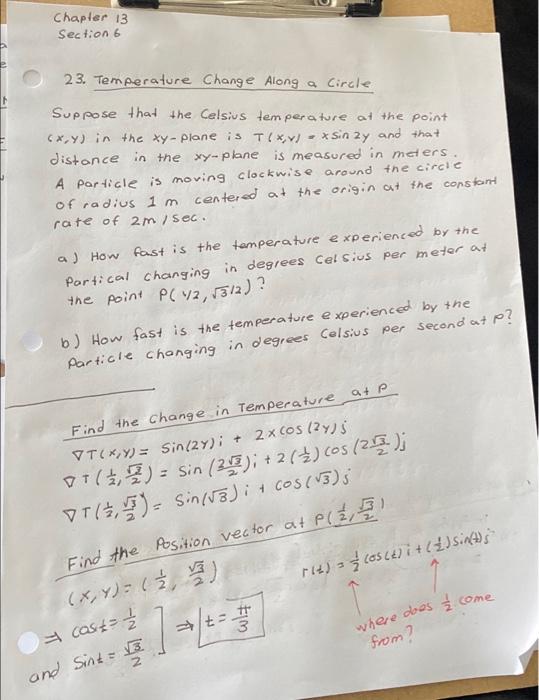 Chapter 13
Section 6
23. Temperature Change Along a Circle
Suppose that the Celsius temperature at the point
(x,y) in the xy-plane is T(x,y) = x sin 2y and that
distance in the xy-plane is measured in meters.
A particle is moving clockwise around the circle
of radius 1 m centered at the origin at the constant
rate of 2m/sec.
a) How fast is the temperature experienced by the
Partical changing in degrees Celsius per meter at
the point P(1/2, √3/2)?
b) How fast is the temperature experienced by the
Particle changing in degrees Celsius per second at P?
Find the Change in Temperature at P
∇T(x,y) = Sin(2y)i + 2xcos(2y)j
∇T(1/2, √3/2) = Sin(2√3/2)i + 2(1/2)cos(2√3/2)j
∇T(1/2, √3/2) = Sin(√3)i + cos(√3)j
Find the Position vector at P(1/2, √3/2)
(x,y) = (1/2, √3/2)
r(t) = 1/2 cos(t)i + (1/2)sin(t)j
⇒ cost = 1/2
and Sint = √3/2 ] ⇒ t = π/3
where does 1/2 come
from?